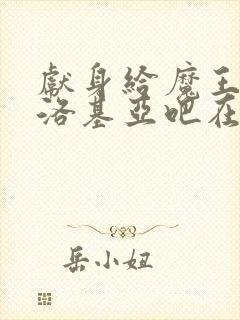 獻身給魔王
洛基亞吧在
岳小妞